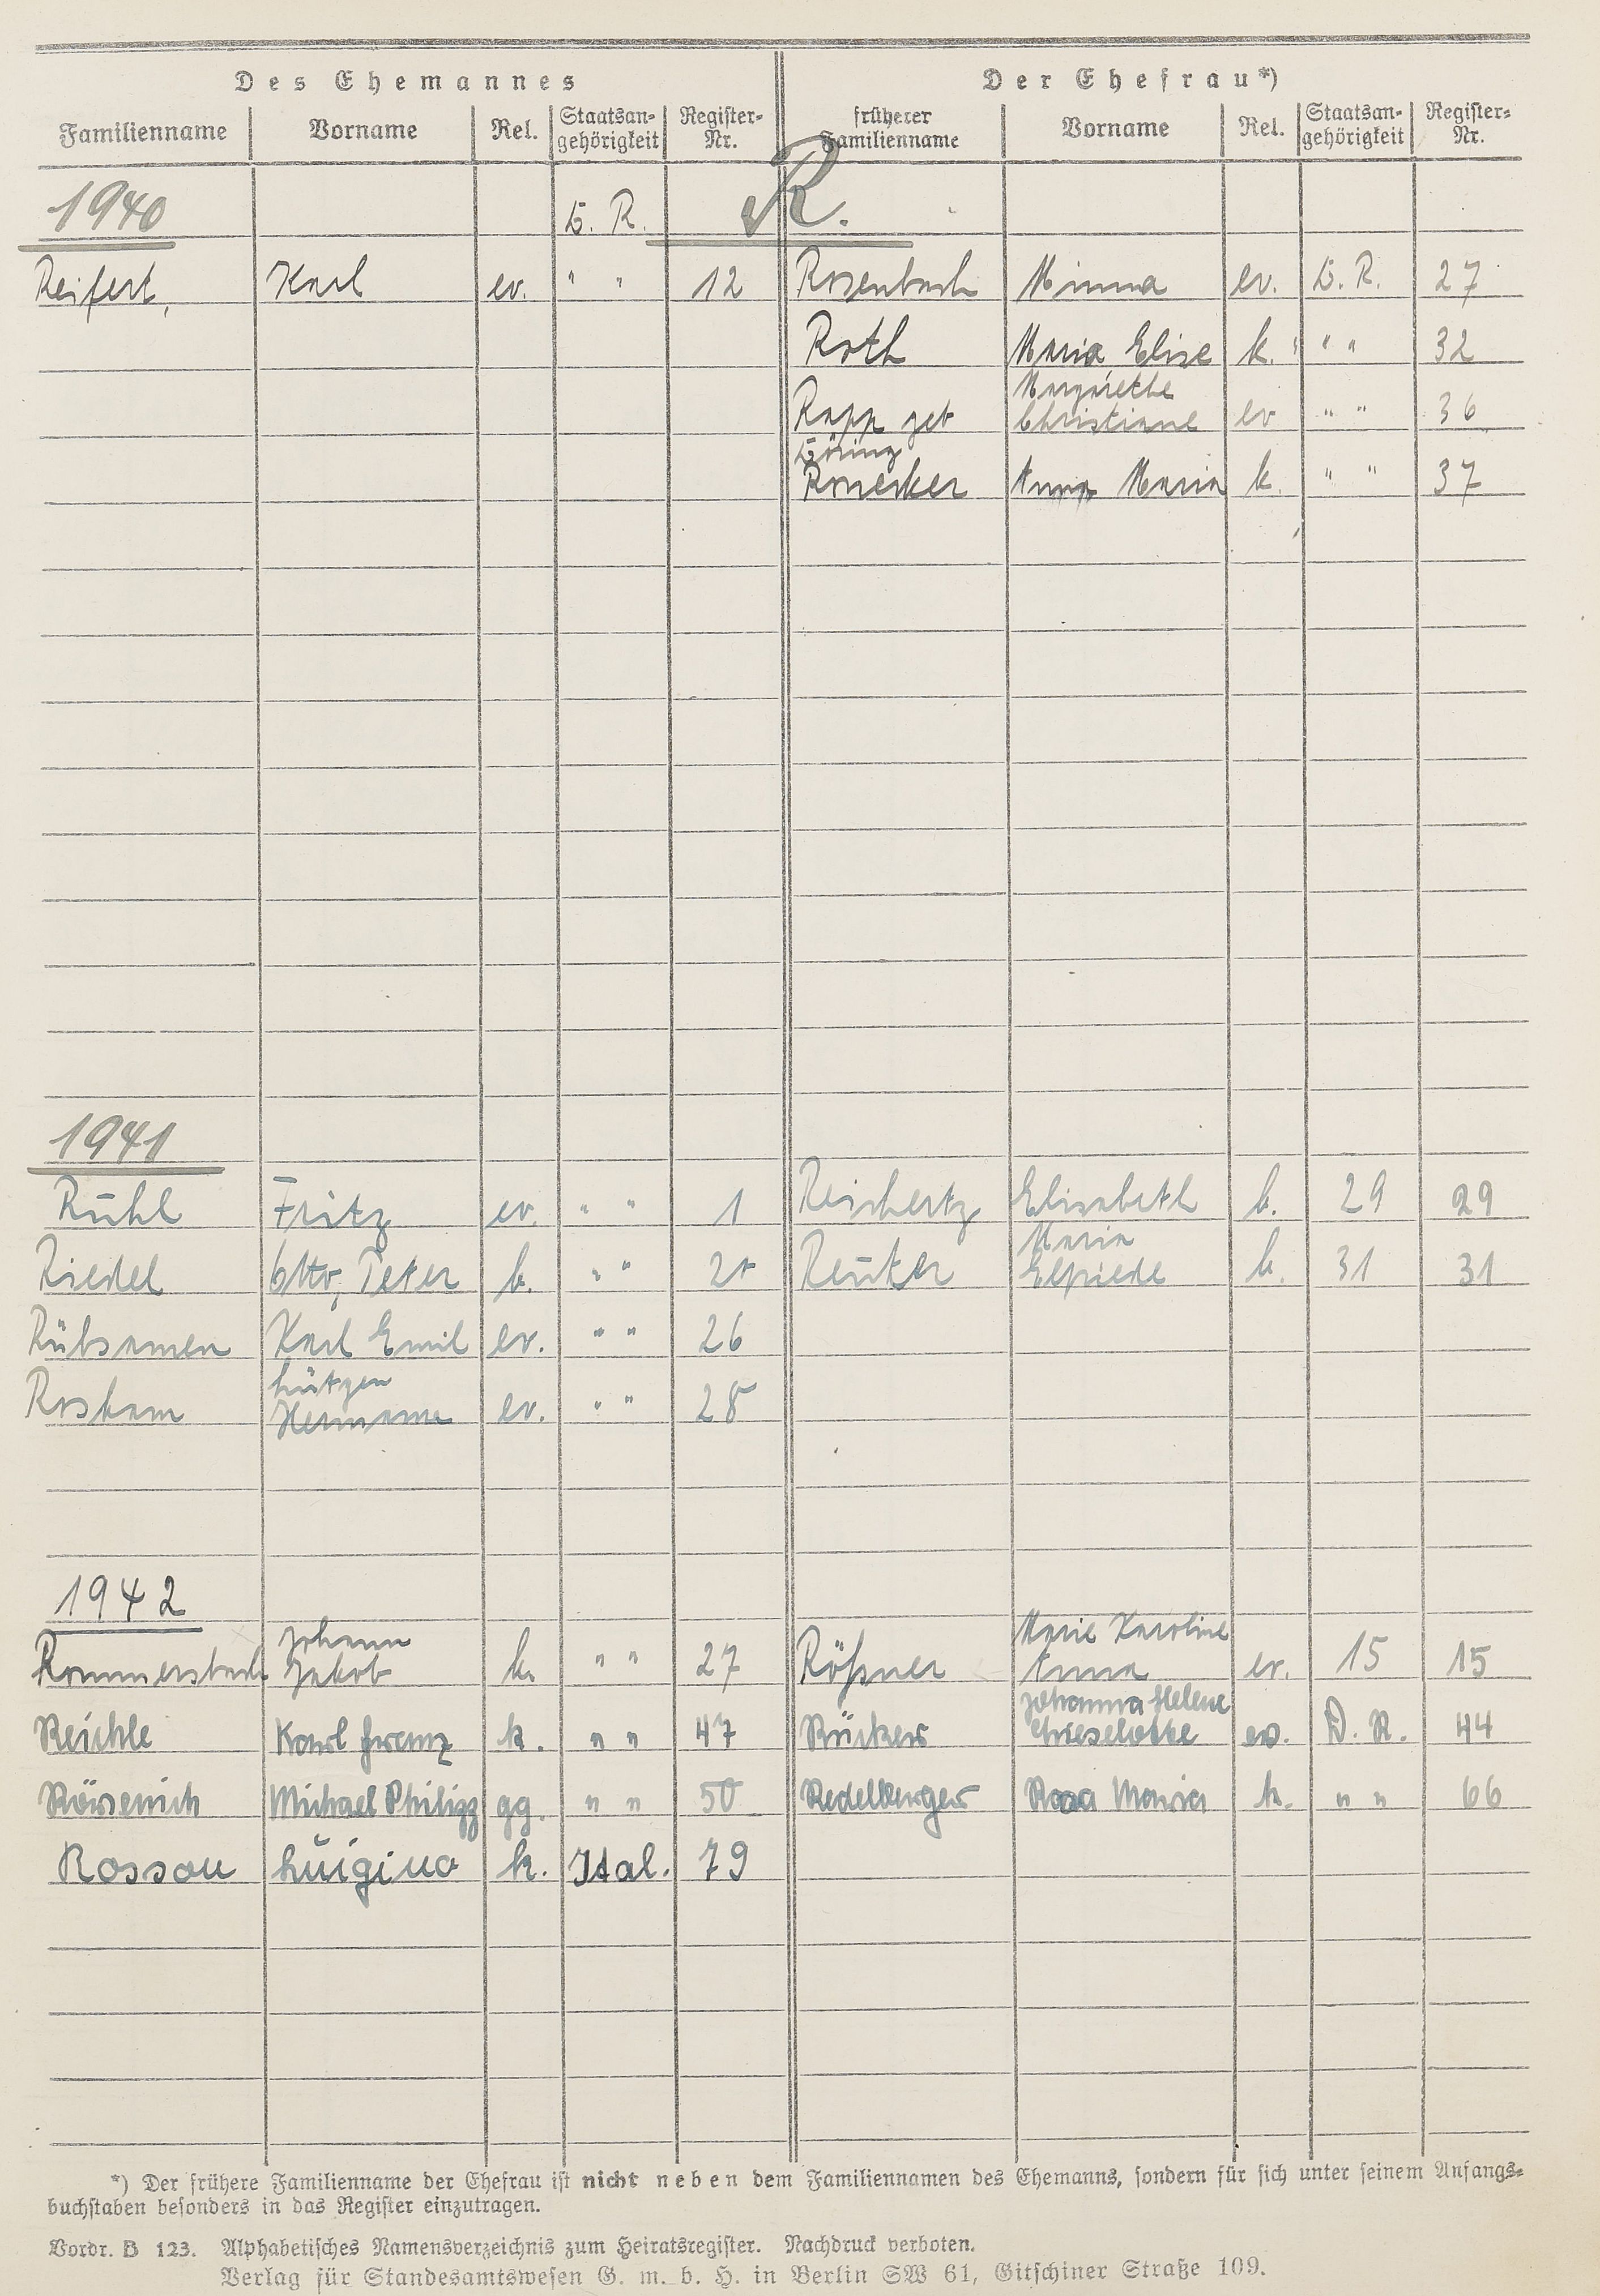 Des Ehemannes Der Ehefrau*)
Familienname Vorname Rel. Staatsan-gehörigkeit Register-Nr. früherer Familienname Vorname Rel. Staatsan-gehörigkeit Register-Nr.
R.
1940 D. R.
Reifert, Karl ev. " " 12 Rosenbach Minna ev. D. R. 27
Roth Maria Elise k. " " 32
Margarethe
Rapp geb Christiane ev " " 36
Göring
Anna Maria k. " " 37
1941
Rühl Fritz ev. " " 1 Reichertz Elisabeth k. 29 29
Maria
Riedel Otto, Peter k. " " Reuter Elfriede k. 31 31
Rübsamen Karl Emil ev. " " 26
Roskam Hermann ev. " " 28
1942
Johann Marie Karoline
Rommersbach Jakob k. " " 27 Rößner Anna ev. 15 15
Johanna Helene
Reichle Karl Franz k. " " 47 Rücker Lieselotte ev. D. R. 44
Michael Philipp gg. " " 50 Redelberger Rosa Maria k. " " 66
Rosson Luigino k. Ital. 79
*) Der frühere Familienname der Ehefrau ist nicht neben dem Familiennamen des Ehemanns, sondern für sich unter seinem Anfangs-
buchstaben besonders in das Register einzutragen.
Vordr. B 123. Alphabetisches Namensverzeichnis zum Heiratsregister. Nachdruck verboten.
Verlag für Standesamtswesen G. m. b. H. in Berlin SW 61, Gitschiner Straße 109.